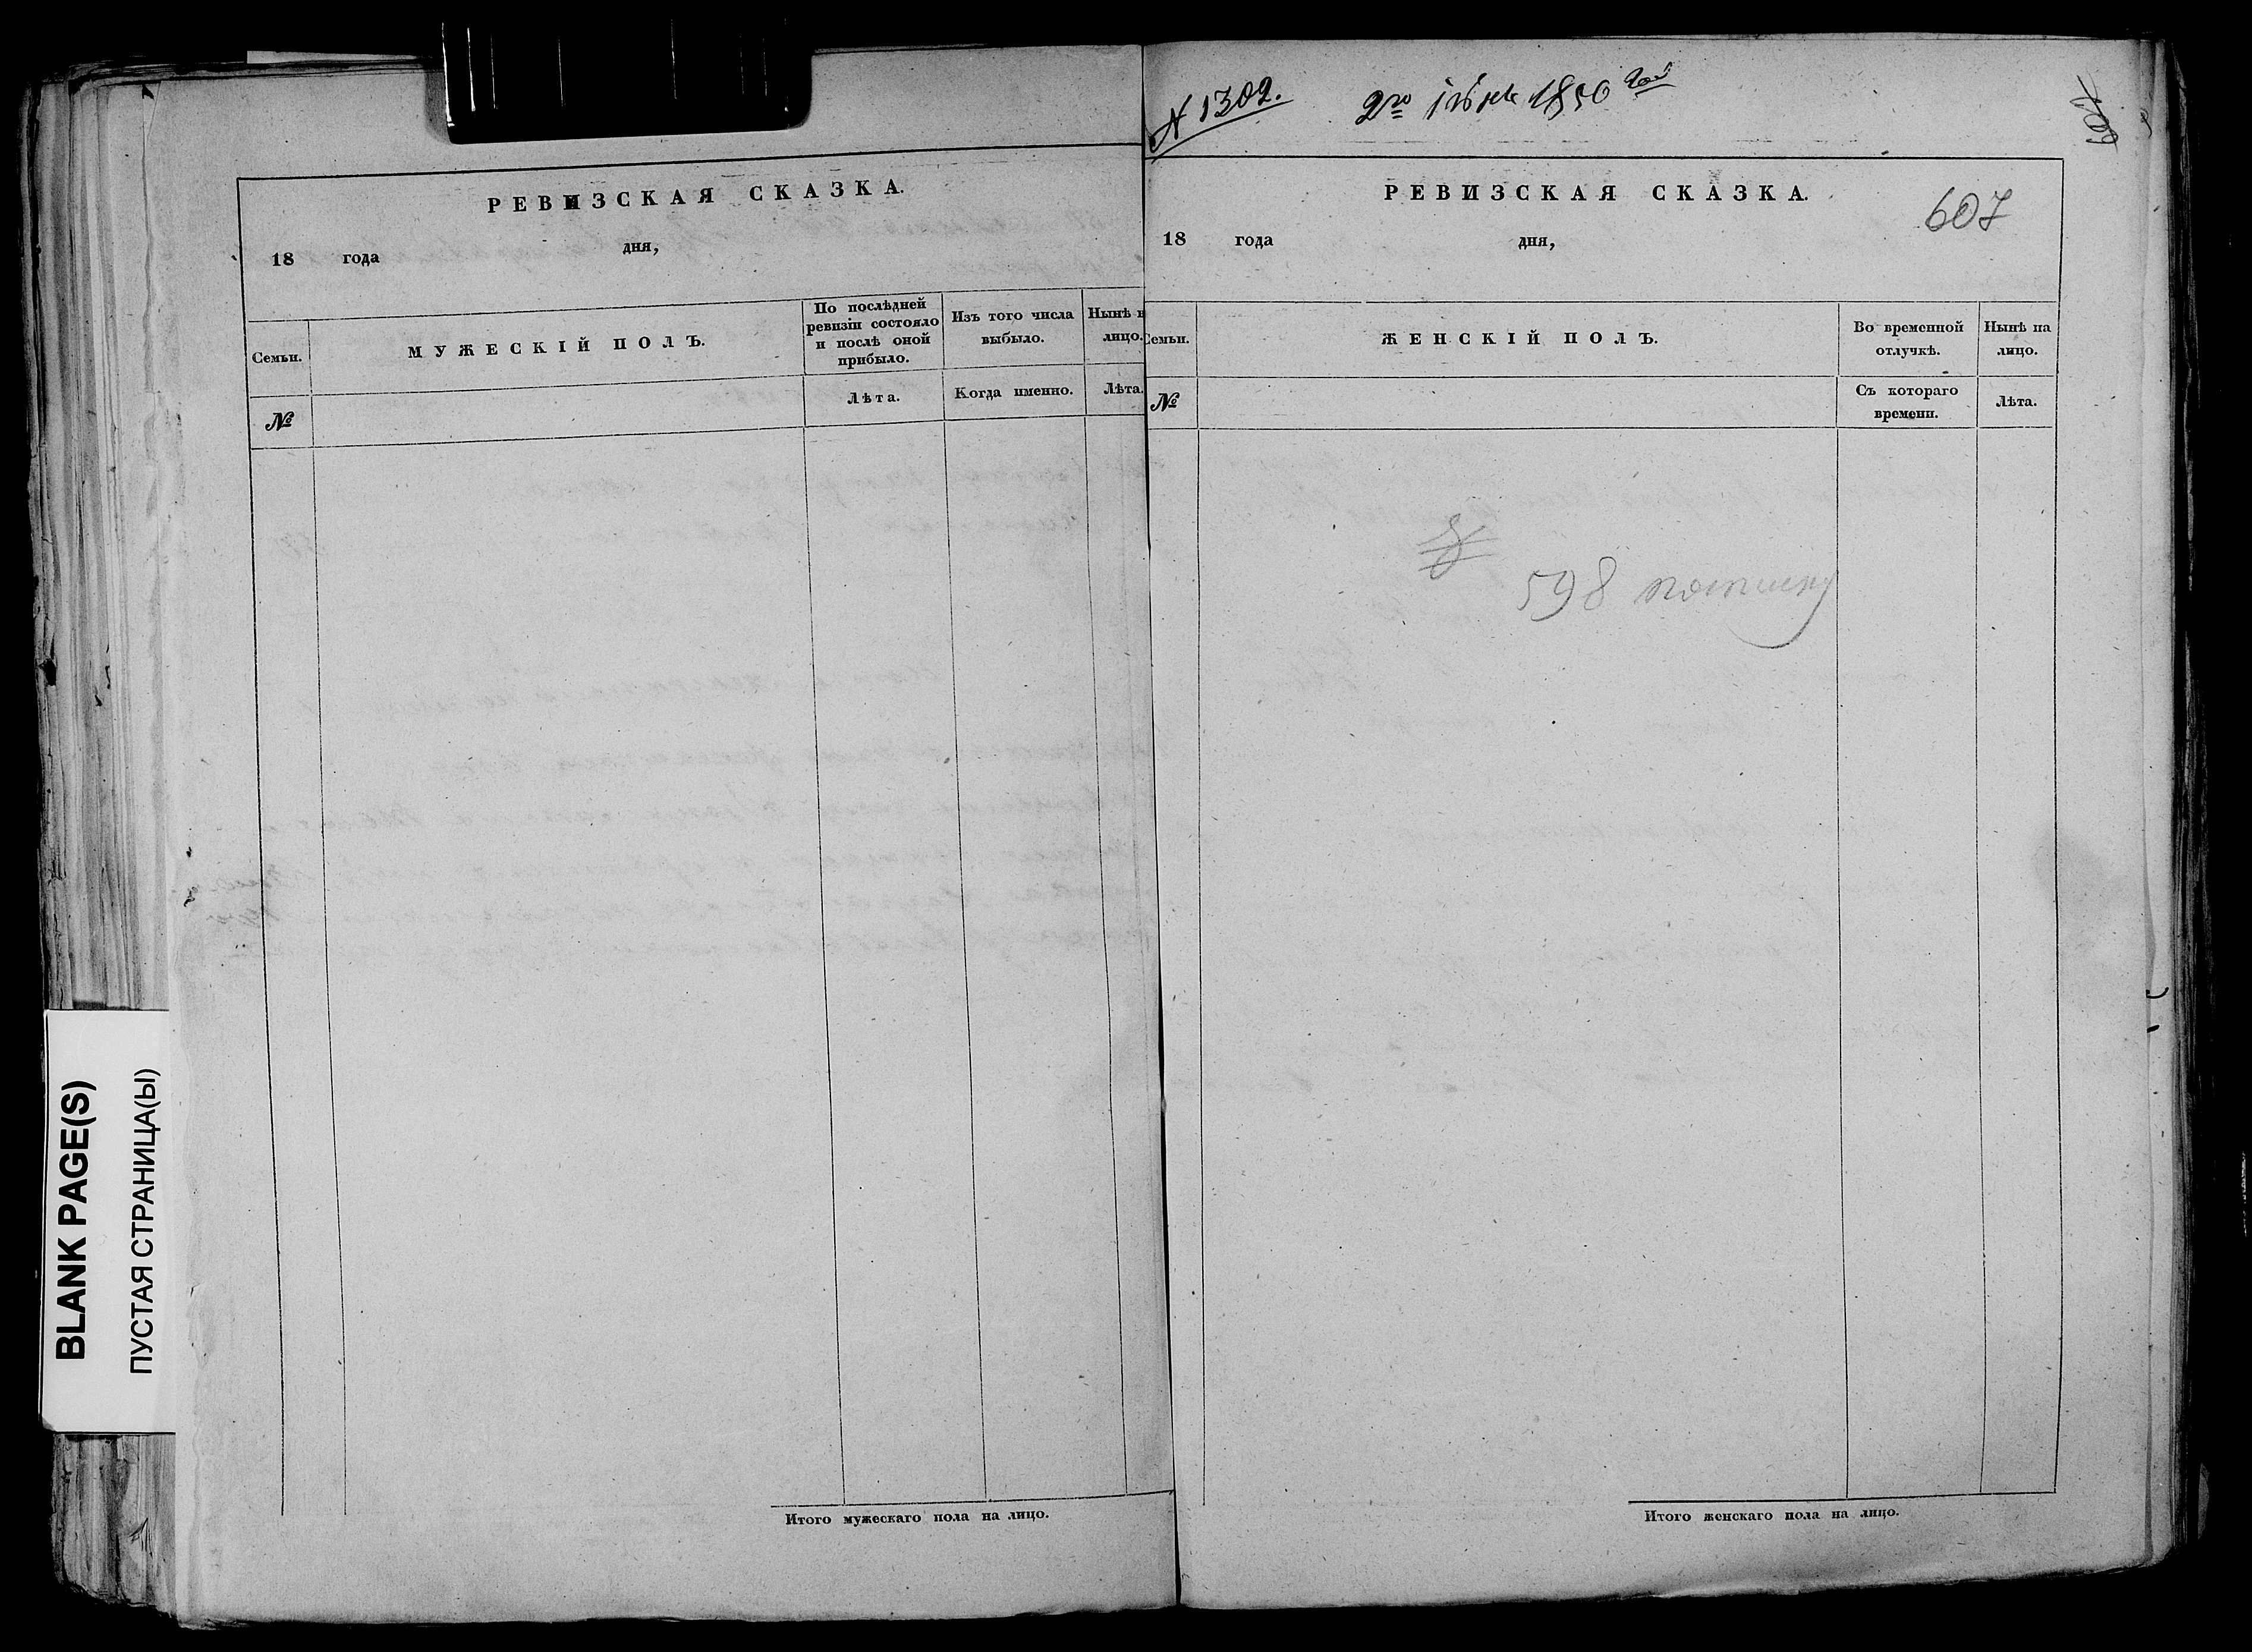 РЕВИЗСКАЯ СКАЗКА.
18 года дня,
Семьи.
МУЖЕСКІЙ ПОЛЪ.
По послѣдней
ревизіи состояло
и послѣ оной
прибыло.
Изъ того числа
выбыло.
Нынѣ н
лицо.
№
Лѣта.
Когда именно.
Лѣта.
Итого мужескаго пола на лицо.
N 1302. 2го 1850 года
РЕВИЗСКАЯ СКАЗКА.
607
18 года дня,
Семьи.
ЖЕНСКІЙ ПОЛЪ.
Во временной
отлучкѣ.
Нынѣ на
лицо.
№
Съ котораго
времени.
Лѣта.
598
Итого женскаго пола на лицо.
BLANK PAGE(S)
ПУСТАЯ СТРАНИЦА(Ы)